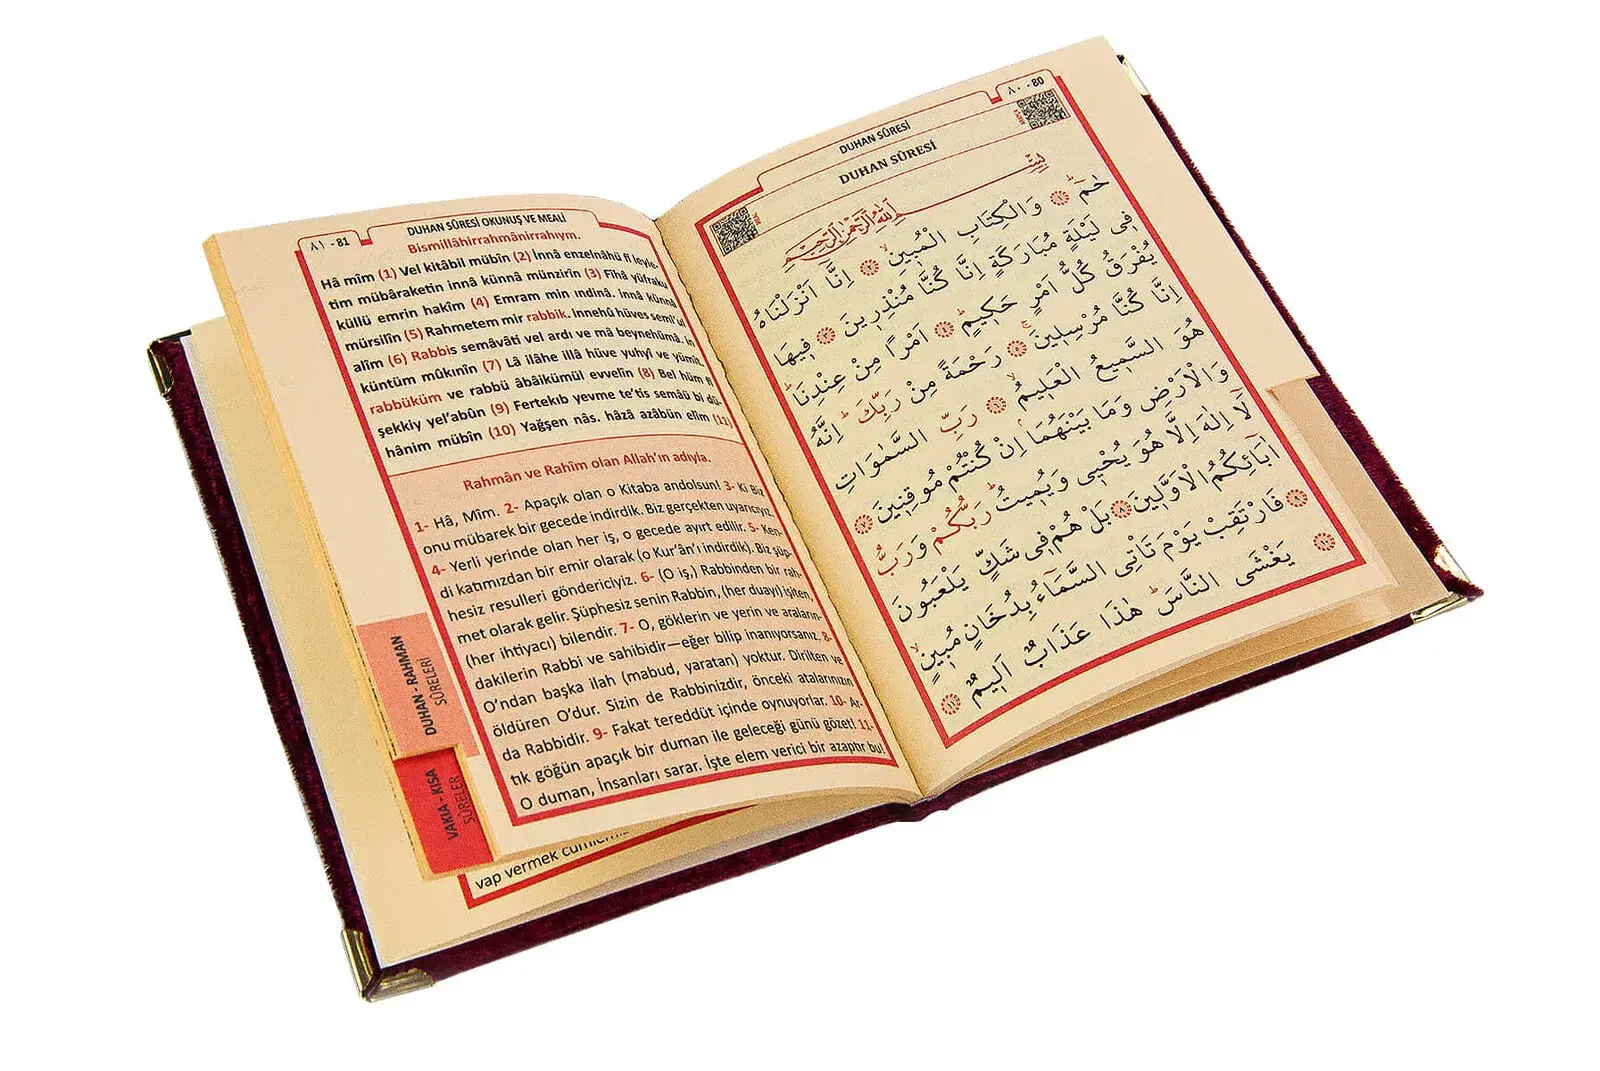 DUHAN SÛRESİ ٨٠ - 80
DUHAN SÛRESİ
بِسْمِ اللّٰهِ الرَّحْمٰنِ الرَّحٖيمِ
حٰمٓ ۚ ﴿١﴾ وَالْكِتَابِ الْمُبٖينِ ۙ ﴿٢﴾ اِنَّٓا اَنْزَلْنَاهُ
فٖي لَيْلَةٍ مُبَارَكَةٍ اِنَّا كُنَّا مُنْذِرٖينَ ﴿٣﴾ فٖيهَا
يُفْرَقُ كُلُّ اَمْرٍ حَكٖيمٍ ۙ ﴿٤﴾ اَمْرًا مِنْ عِنْدِنَا ۜ
اِنَّا كُنَّا مُرْسِلٖينَ ۚ ﴿٥﴾ رَحْمَةً مِنْ رَبِّكَ ۜ اِنَّهُ
هُوَ السَّمٖيعُ الْعَلٖيمُ ۙ ﴿٦﴾ رَبِّ السَّمٰوَاتِ
وَالْاَرْضِ وَمَا بَيْنَهُمَا اِنْ كُنْتُمْ مُوقِنٖينَ ﴿٧﴾
لَٓا اِلٰهَ اِلَّا هُوَ يُحْيٖي وَيُمٖيتُ ۜ رَبُّكُمْ وَرَبُّ
اٰبَٓائِكُمُ الْاَوَّلٖينَ ﴿٨﴾ بَلْ هُمْ فٖي شَكٍّ يَلْعَبُونَ
﴿٩﴾ فَارْتَقِبْ يَوْمَ تَاْتِي السَّمَٓاءُ بِدُخَانٍ مُبٖينٍ ۙ
﴿١٠﴾ يَغْشَى النَّاسَ ۜ هٰذَا عَذَابٌ اَلٖيمٌ ﴿١١﴾
٨١ - 81 DUHAN SÛRESİ OKUNUŞ VE MEALİ
Bismillâhirrahmânirrahıym.
Hâ mîm (1) Vel kitâbil mübîn (2) İnnâ enzelnâhü fî leyle-
tim mübâraketin innâ künnâ münzirîn (3) Fîhâ yüfraku
küllü emrin hakîm (4) Emram min ındinâ. innâ künnâ
mürsilîn (5) Rahmetem mir rabbik. innehû hüves semî'ul
alîm (6) Rabbis semâvâti vel ardı ve mâ beynehümâ. in
küntüm mûkınîn (7) Lâ ilâhe illâ hüve yuhyî ve yümît.
rabbüküm ve rabbü âbâikümül evvelîn (8) Bel hüm fî
şekkiy yel'abûn (9) Fertekıb yevme te'tis semâü bi dü-
hânim mübîn (10) Yağşen nâs. hâzâ azâbün elîm (11)
Rahmân ve Rahîm olan Allah'ın adıyla.
1- Hâ, Mîm. 2- Apaçık olan o Kitaba andolsun! 3- Ki Biz
onu mübarek bir gecede indirdik. Biz gerçekten uyarıcıyız.
4- Yerli yerinde olan her iş, o gecede ayırt edilir. 5- Ken-
di katımızdan bir emir olarak (o Kur'ân'ı indirdik). Biz şüp-
hesiz resulleri göndericiyiz. 6- (O iş,) Rabbinden bir rah-
met olarak gelir. Şüphesiz senin Rabbin, (her duayı) işiten,
(her ihtiyacı) bilendir. 7- O, göklerin ve yerin ve araların-
dakilerin Rabbi ve sahibidir—eğer bilip inanıyorsanız. 8-
O'ndan başka ilah (mabud, yaratan) yoktur. Dirilten ve
öldüren O'dur. Sizin de Rabbinizdir, önceki atalarınızın
da Rabbidir. 9- Fakat tereddüt içinde oynuyorlar. 10- Ar-
tık göğün apaçık bir duman ile geleceği günü gözet! 11-
O duman, İnsanları sarar. İşte elem verici bir azaptır bu!
DUHAN - RAHMAN
SÛRELERİ
VAKIA - KISA
SÛRELER
vap vermek